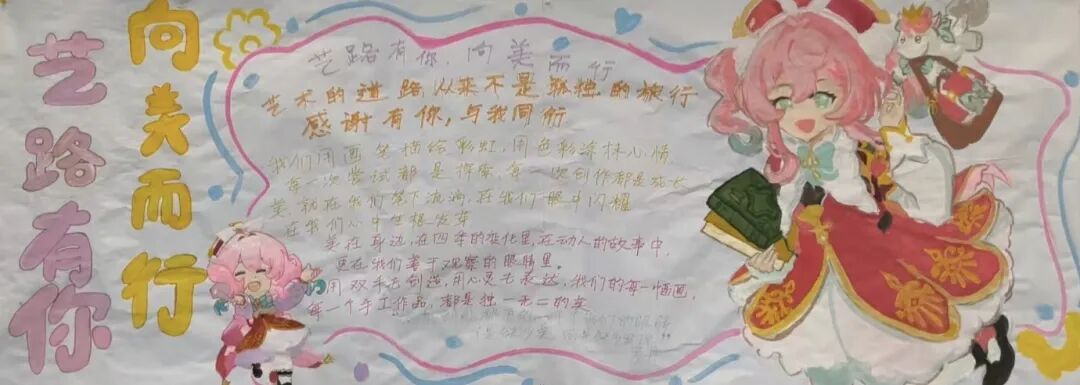 艺路有你
向美而行
艺路有你，向美而行
艺术的道路，从来不是孤独的旅行
感谢有你，与我同行
我们用画笔描绘彩虹，用色彩涂抹心情，
每一次尝试都是探索，每一次创作都是成长
美，就在我们笔下流淌，在我们眼中闪耀
在我们心中生根发芽
美在身边，在四季的变化里，在动人的故事中，
更在我们善于观察的眼睛里。
用双手去创造，用心灵去表达，我们的每一幅画，
每一个手工作品，都是独一无二的美